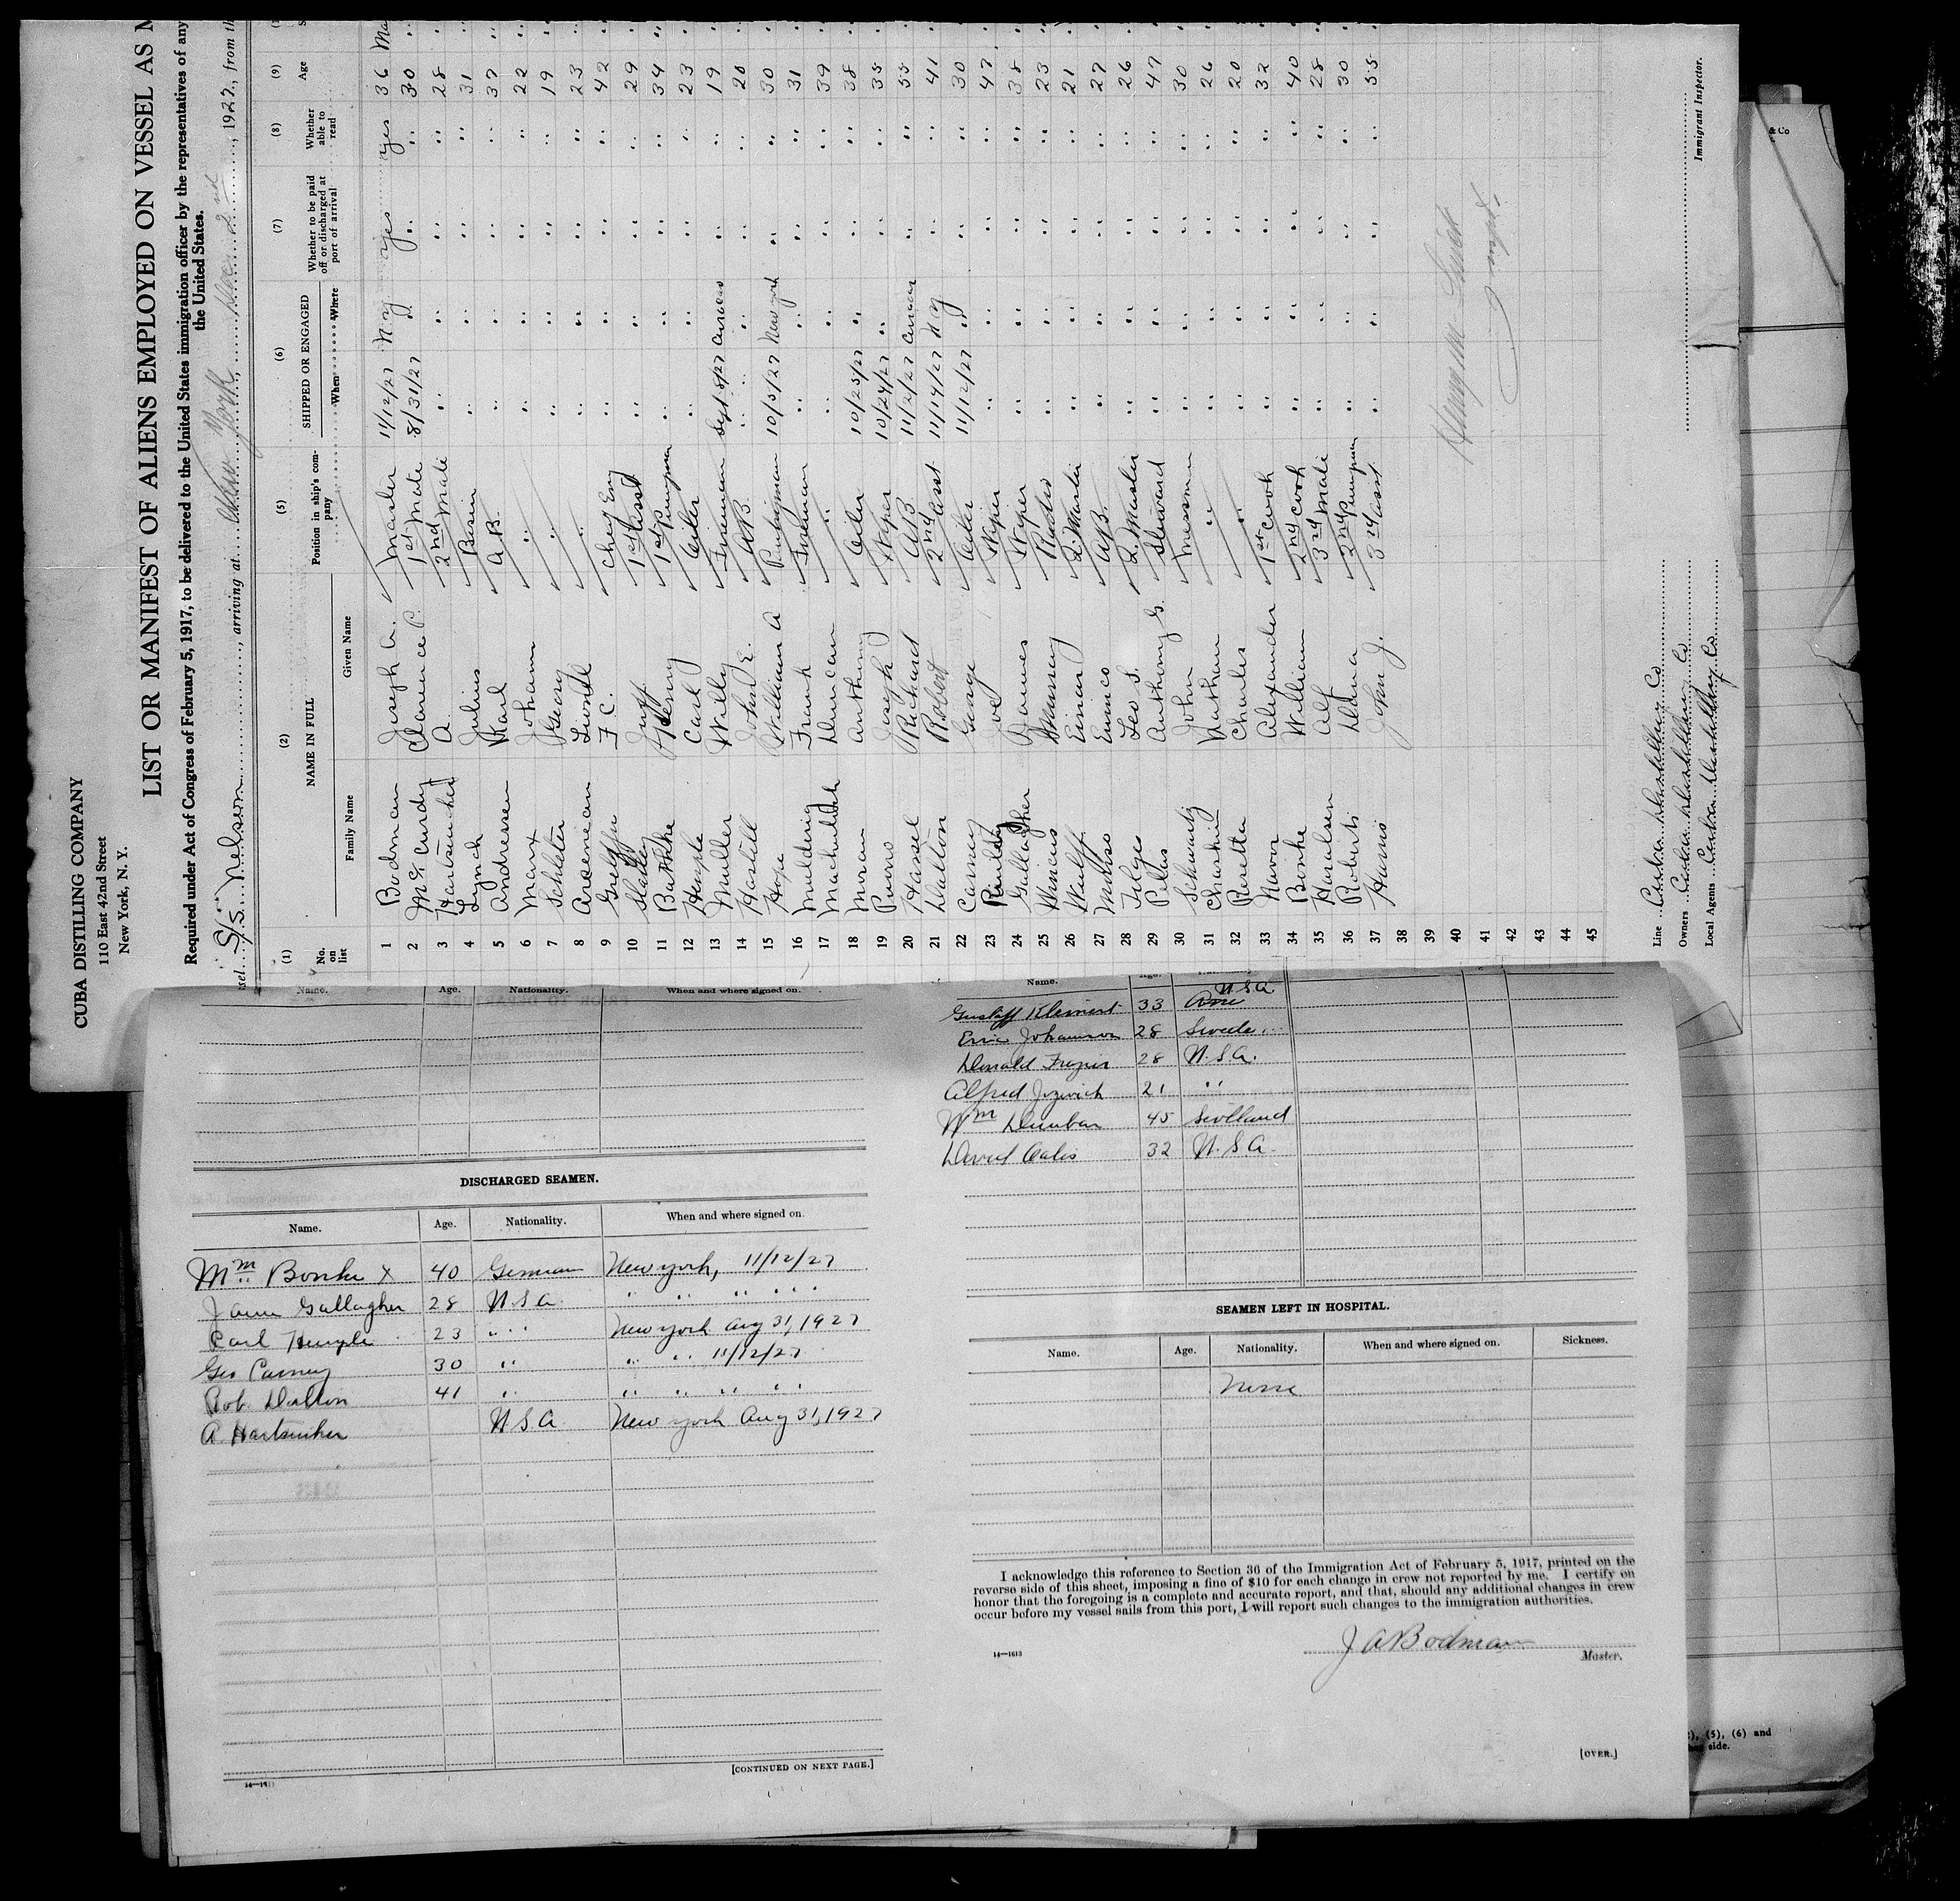 CUBA DISTILLING COMPANY
110 East 42nd Street
New York, N. Y.
LIST OR MANIFEST OF ALIENS EMPLOYED ON VESSEL AS M
Required under Act of Congress of February 5, 1917, to be delivered to the United States immigration officer by the representatives of any
the United States.
S/S Nelson, arriving at New York, Dec 2nd, 1927, from th
(1) (2) (5) (6) (7) (8) (9)
No. on list NAME IN FULL Position in ship's company SHIPPED OR ENGAGED Whether to be paid off or discharged at port of arrival Whether able to read Age
Family Name Given Name When Where
1 Bodman Joseph A. Master 11/12/27 N Y yes yes 36 Ma
2 McCurdy Clarence P. 1st Mate 8/31/27 " " " 30 "
3 A. 2nd Mate " " " " 28 "
4 Lynch Julius Bosun " " " " 31 "
5 Andressen Karl A.B. " " " " 37 "
6 Marx Johann " " " " " 22 "
7 Schluter Georg " " " " " 19 "
8 Areenean " " " " " 23 "
9 F. C. Chief Eng " " " " 42 "
10 1st Asst " " " " 29 "
11 Henry 1st Pumpman " " " " 34 "
12 Hemple Carl Oiler " " " " 23 "
13 Muller Willy Fireman Sept 8/27 " " 19 "
14 Haskill John E. A.B. " " " " 20 "
15 Hope William A 10/5/27 New York " " 30 "
16 Muldering Frank Fireman " " " " 31 "
17 Duncan " " " " " 39 "
18 Moran Anthony Oiler 10/25/27 " " " 38 "
19 Joseph Wiper 10/24/27 " " " 35 "
20 Hassel Richard A.B. 11/2/27 " " 55 "
21 Dalton Robert 2nd Asst 11/14/27 N Y " " 41 "
22 Carney George Oiler 11/12/27 " " " 30 "
23 Joe Wiper " " " " 47 "
24 Gallagher James Wiper " " " " 38 "
25 Murray Radio " " " " 23 "
26 Wulff Einar Q. Master " " " " 21 "
27 A.B. " " " " 27 "
28 Filges Leo S. Q. Master " " " " 26 "
29 Anthony G. Steward " " " " 47 "
30 Schwartz John Messman " " " " 30 "
31 Nathan " " " " " 26 "
32 Charles " " " " " 20 "
33 Alexander 1st Cook " " " " 32 "
34 Bonke William 2nd Cook " " " " 40 "
35 Haralsen Alf 3rd Mate " " " " 28 "
36 Roberts 2nd Pumpman " " " " 30 "
37 Harris John J. 3rd Asst " " " " 55 "
38
39
40
41
42
43
44
45
Line Cuba Distilling Co
Owners Cuba Distilling Co
Local Agents Cuba Distilling Co
Immigrant Inspector.
& Co
Name. Age. Nationality. When and where signed on.
DISCHARGED SEAMEN.
Name. Age. Nationality. When and where signed on.
Wm Bonke x 40 German New York, 11/12/27
James Gallagher 28 U.S.A. " " " " "
Carl Hemple 23 " " New York Aug 31, 1927
Geo Carney 30 " " " 11/12/27
Rob. Dalton 41 " " " " " "
A. Hartsuiker U.S.A. New York Aug 31, 1927
[CONTINUED ON NEXT PAGE.]
Name. Age.
Gustaff Kleinert 33 U.S.A.
Eric Johannson 28 Swede
Donald Frazier 28 U.S.A.
Alfred Jozwich 21 "
Wm Dunbar 45 Scotland
David Oates 32 U.S.A.
SEAMEN LEFT IN HOSPITAL.
Name. Age. Nationality. When and where signed on. Sickness.
None
I acknowledge this reference to Section 36 of the Immigration Act of February 5, 1917, printed on the
reverse side of this sheet, imposing a fine of $10 for each change in crew not reported by me. I certify on
honor that the foregoing is a complete and accurate report, and that, should any additional changes in crew
occur before my vessel sails from this port, I will report such changes to the immigration authorities.
J A Bodman
14—1613 Master.
[OVER.]
), (5), (6) and
side.